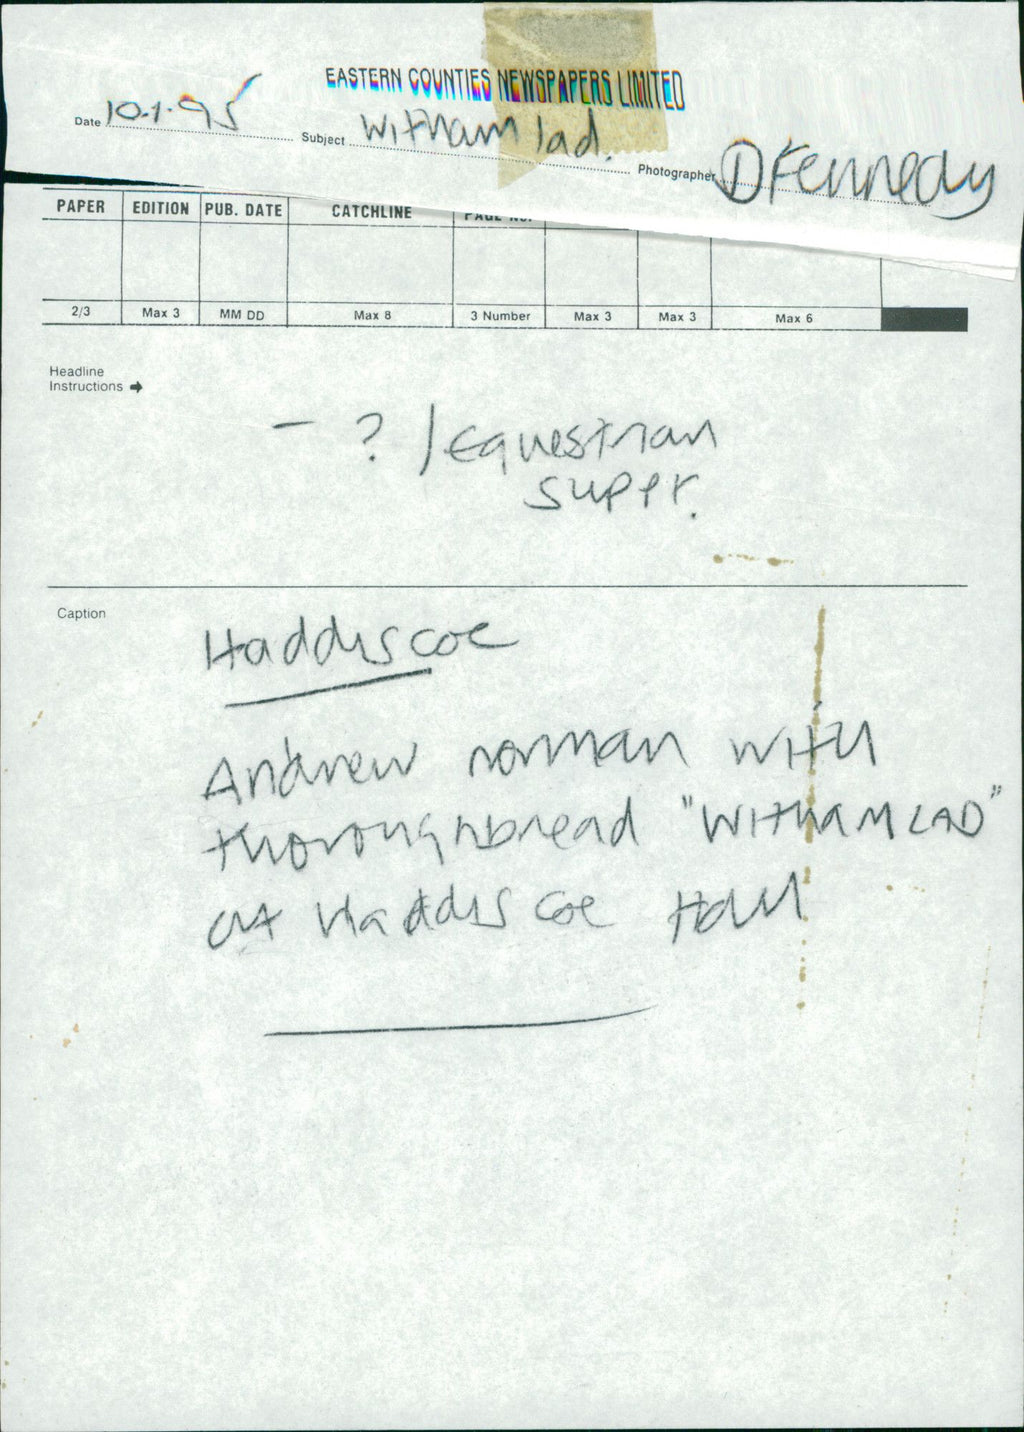 EASTERN COUNTIES NEWSPAPERS LIMITED
Date 10.1.95 Subject Witham lad. Photographer D Kennedy
PAPER EDITION PUB. DATE CATCHLINE PAGE NO.
2/3 Max 3 MM DD Max 8 3 Number Max 3 Max 3 Max 6
Headline
Instructions →
- ? / Equestrian
super.
Caption
Haddiscoe
Andrew Norman with
thoroughbread "WITHAM LAD"
at Haddiscoe Hall